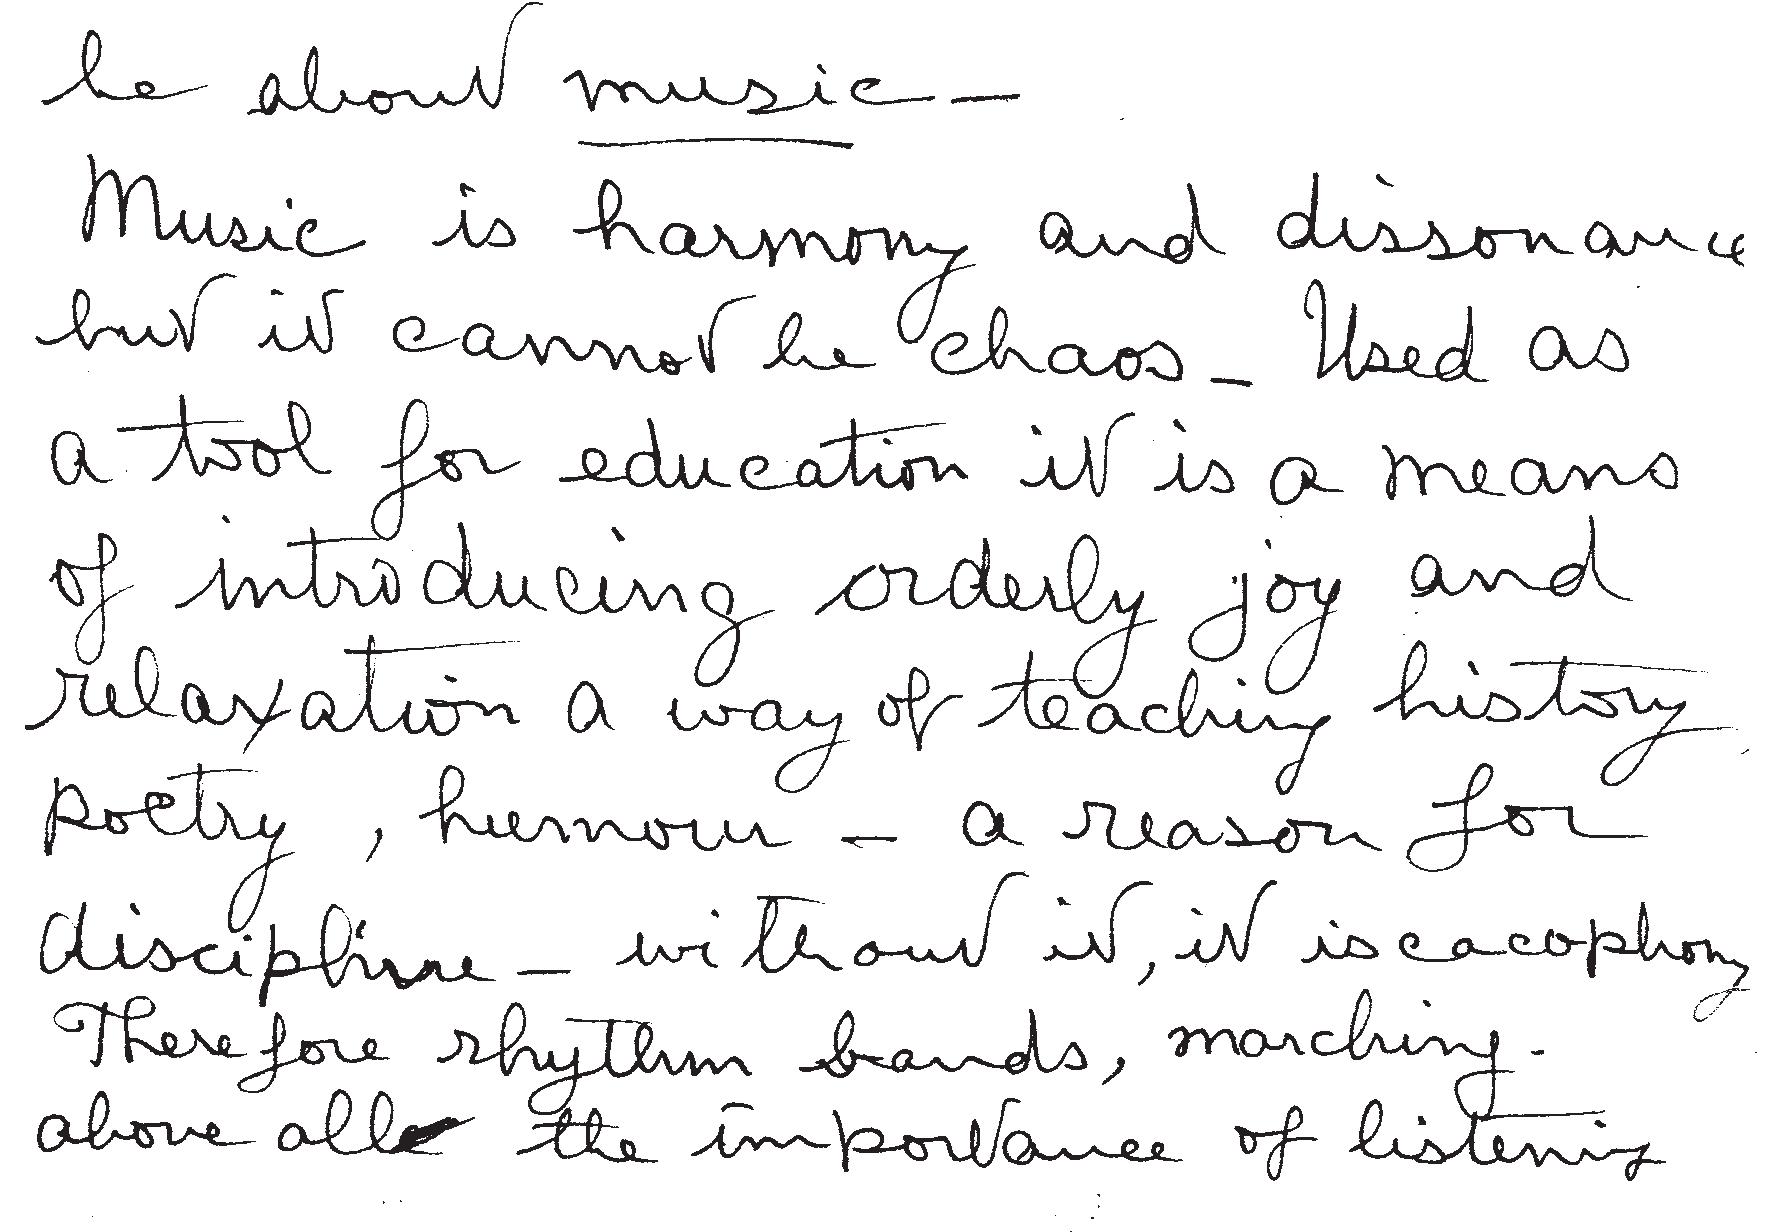 be about music –
Music is harmony and dissonance
but it cannot be chaos – Used as
a tool for education it is a means
of introducing orderly joy and
relaxation a way of teaching history
poetry, humour – a reason for
discipline – without it, it is cacophony
Therefore rhythm bands, marching -
above all the importance of listening